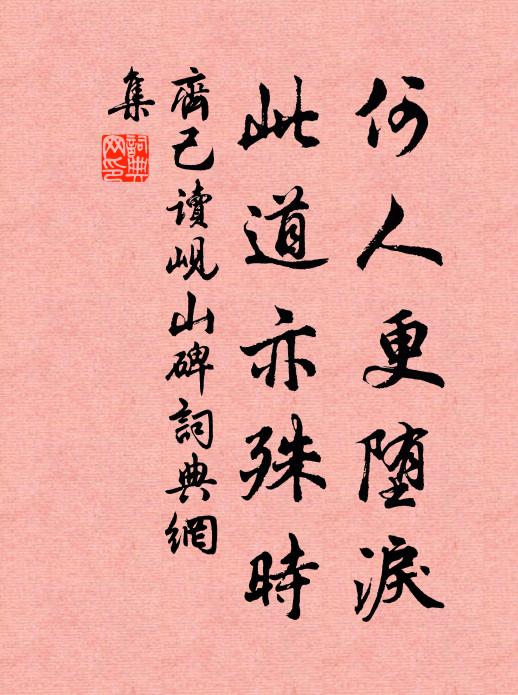 何人更堕淚
此道亦殊時
齊己讀峴山碑詞典網
集
詞典網印